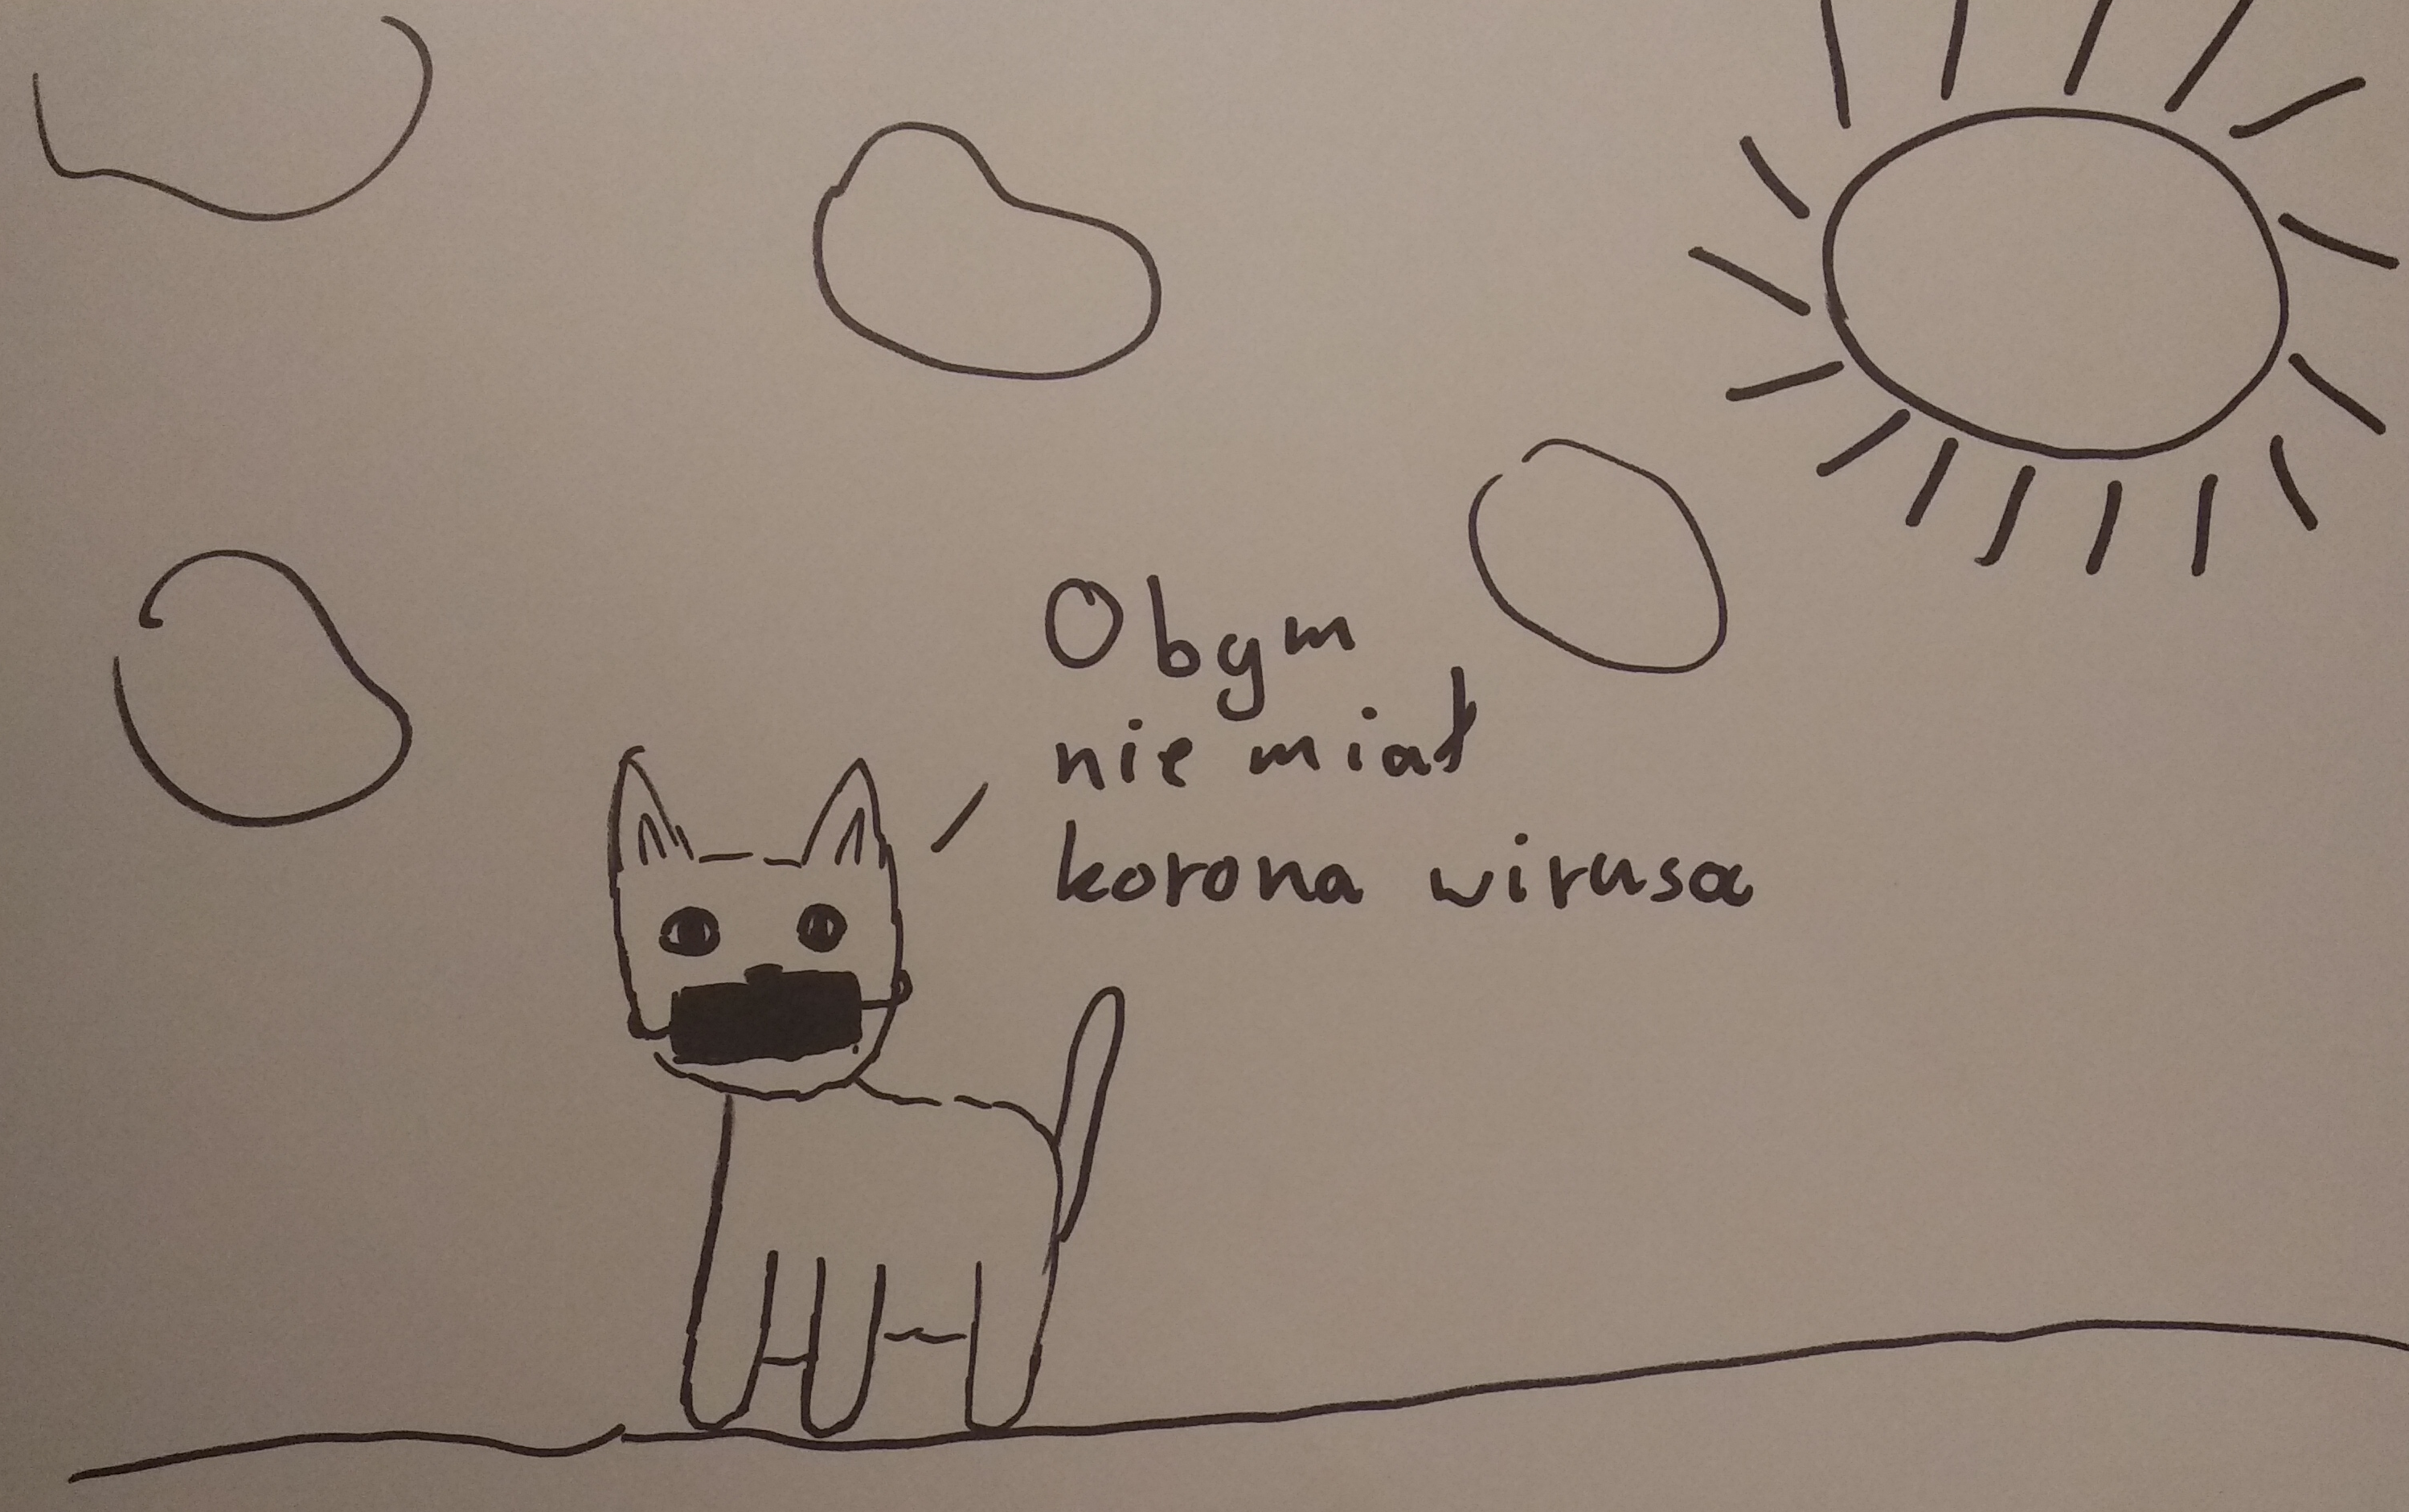 Obym
nie miał
korona wirusa